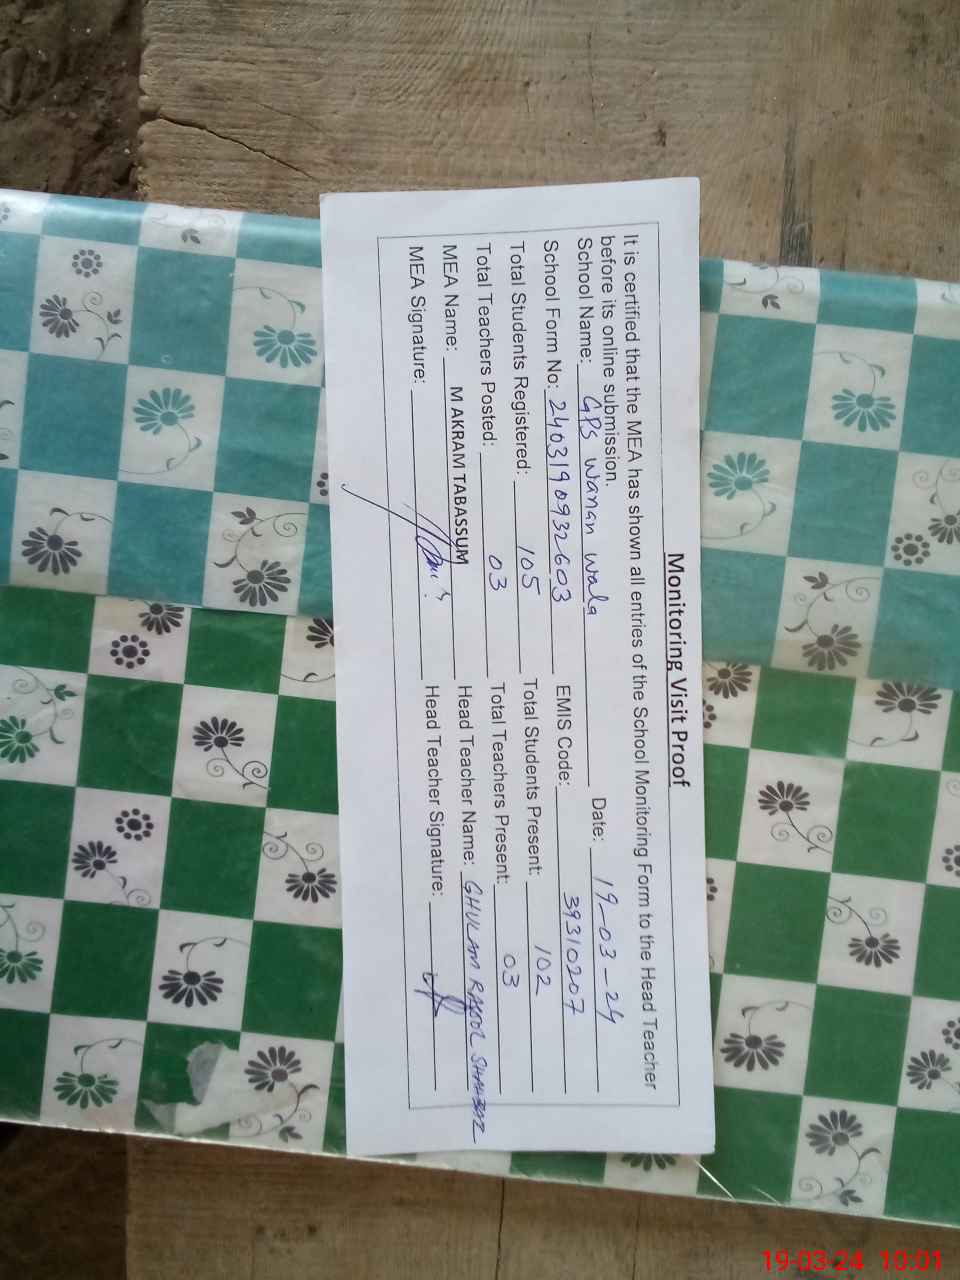 Monitoring Visit Proof
It is certified that the MEA has shown all entries of the School Monitoring Form to the Head Teacher
before its online submission.
School Name: GPS Wanan Wala Date: 19-03-24
School Form No: 2403190932603 EMIS Code: 39310207
Total Students Registered: 105 Total Students Present: 102
Total Teachers Posted: 03 Total Teachers Present: 03
MEA Name: M AKRAM TABASSUM Head Teacher Name: GHULAM RASOOL SHAHBAZ
MEA Signature: Head Teacher Signature:
19-03-24 10:01